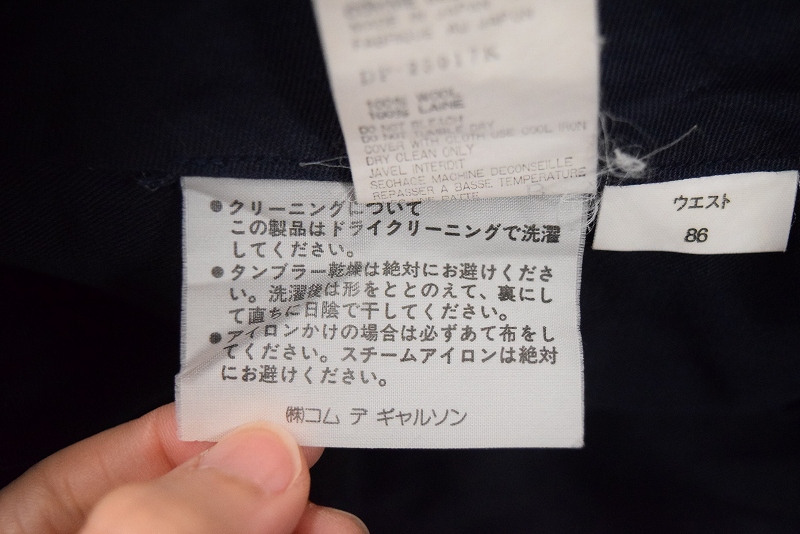 MADE IN JAPAN
FABRIQUE AU JAPON
100% WOOL
100% LAINE
DO NOT BLEACH
DO NOT TUMBLE DRY
COVER WITH CLOTH-USE COOL IRON
DRY CLEAN ONLY
JAVEL INTERDIT
SECHAGE MACHINE DECONSEILLE
REPASSER A BASSE TEMPERATURE
●クリーニングについて
この製品はドライクリーニングで洗濯
してください。
●タンブラー乾燥は絶対にお避けくださ
い。洗濯後は形をととのえて、裏にし
て直ちに日陰で干してください。
●アイロンかけの場合は必ずあて布をし
てください。スチームアイロンは絶対
にお避けください。
㈱コム デ ギャルソン
ウエスト
86